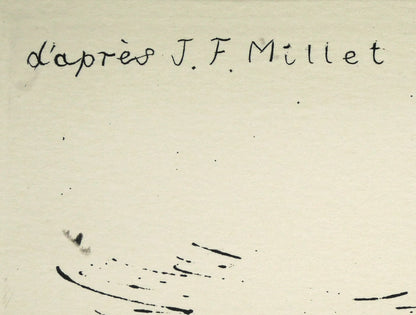 d'après J. F. Millet